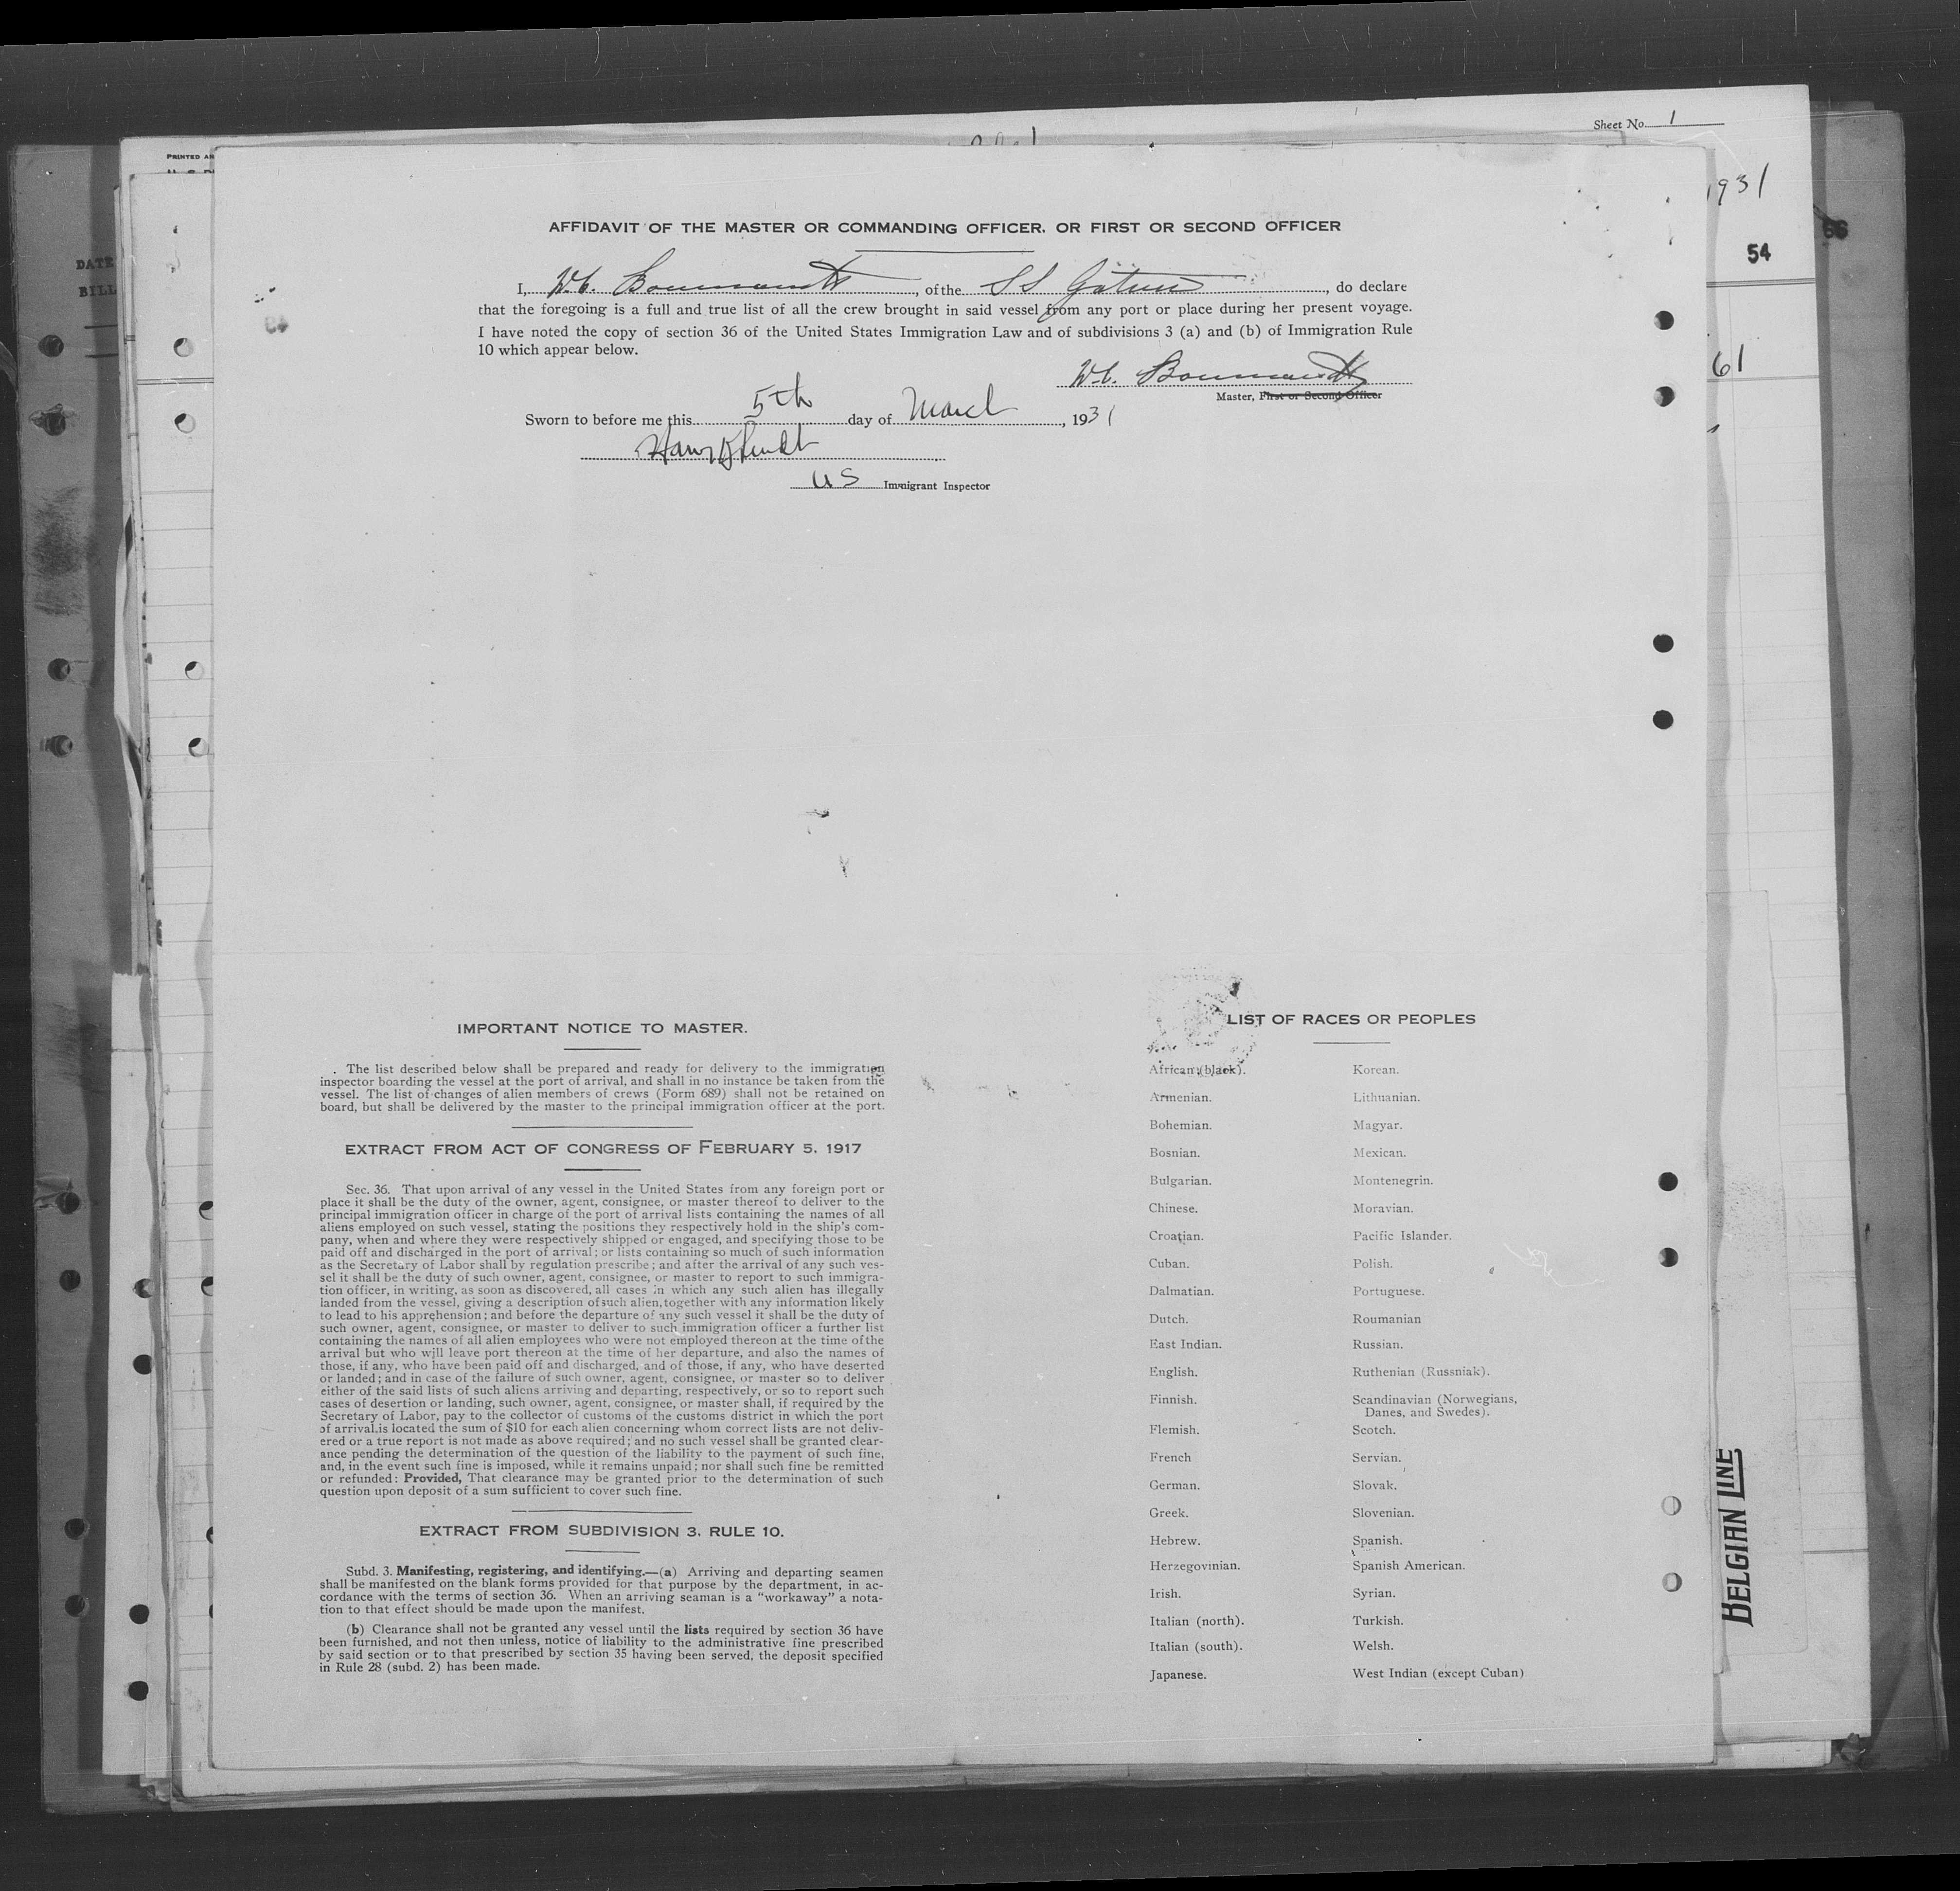 Sheet No. 1
PRINTED
1931
54
66
DATE
BILL
61
AFFIDAVIT OF THE MASTER OR COMMANDING OFFICER, OR FIRST OR SECOND OFFICER
I, W.C. , of the SS Gatun , do declare
that the foregoing is a full and true list of all the crew brought in said vessel from any port or place during her present voyage.
I have noted the copy of section 36 of the United States Immigration Law and of subdivisions 3 (a) and (b) of Immigration Rule
10 which appear below.
W.C.
Master, First or Second Officer
Sworn to before me this 5th day of March, 1931
US Immigrant Inspector
IMPORTANT NOTICE TO MASTER.
The list described below shall be prepared and ready for delivery to the immigration
inspector boarding the vessel at the port of arrival, and shall in no instance be taken from the
vessel. The list of changes of alien members of crews (Form 689) shall not be retained on
board, but shall be delivered by the master to the principal immigration officer at the port.
EXTRACT FROM ACT OF CONGRESS OF FEBRUARY 5, 1917
Sec. 36. That upon arrival of any vessel in the United States from any foreign port or
place it shall be the duty of the owner, agent, consignee, or master thereof to deliver to the
principal immigration officer in charge of the port of arrival lists containing the names of all
aliens employed on such vessel, stating the positions they respectively hold in the ship's com-
pany, when and where they were respectively shipped or engaged, and specifying those to be
paid off and discharged in the port of arrival; or lists containing so much of such information
as the Secretary of Labor shall by regulation prescribe; and after the arrival of any such ves-
sel it shall be the duty of such owner, agent, consignee, or master to report to such immigra-
tion officer, in writing, as soon as discovered, all cases in which any such alien has illegally
landed from the vessel, giving a description of such alien, together with any information likely
to lead to his apprehension; and before the departure of any such vessel it shall be the duty of
such owner, agent, consignee, or master to deliver to such immigration officer a further list
containing the names of all alien employees who were not employed thereon at the time of the
arrival but who will leave port thereon at the time of her departure, and also the names of
those, if any, who have been paid off and discharged, and of those, if any, who have deserted
or landed; and in case of the failure of such owner, agent, consignee, or master so to deliver
either of the said lists of such aliens arriving and departing, respectively, or so to report such
cases of desertion or landing, such owner, agent, consignee, or master shall, if required by the
Secretary of Labor, pay to the collector of customs of the customs district in which the port
of arrival is located the sum of $10 for each alien concerning whom correct lists are not deliv-
ered or a true report is not made as above required; and no such vessel shall be granted clear-
ance pending the determination of the question of the liability to the payment of such fine,
and, in the event such fine is imposed, while it remains unpaid; nor shall such fine be remitted
or refunded: Provided, That clearance may be granted prior to the determination of such
question upon deposit of a sum sufficient to cover such fine.
EXTRACT FROM SUBDIVISION 3, RULE 10.
Subd. 3. Manifesting, registering, and identifying.—(a) Arriving and departing seamen
shall be manifested on the blank forms provided for that purpose by the department, in ac-
cordance with the terms of section 36. When an arriving seaman is a "workaway" a nota-
tion to that effect should be made upon the manifest.
(b) Clearance shall not be granted any vessel until the lists required by section 36 have
been furnished, and not then unless, notice of liability to the administrative fine prescribed
by said section or to that prescribed by section 35 having been served, the deposit specified
in Rule 28 (subd. 2) has been made.
LIST OF RACES OR PEOPLES
African (black).
Armenian.
Bohemian.
Bosnian.
Bulgarian.
Chinese.
Croatian.
Cuban.
Dalmatian.
Dutch.
East Indian.
English.
Finnish.
Flemish.
French
German.
Greek.
Hebrew.
Herzegovinian.
Irish.
Italian (north).
Italian (south).
Japanese.
Korean.
Lithuanian.
Magyar.
Mexican.
Montenegrin.
Moravian.
Pacific Islander.
Polish.
Portuguese.
Roumanian
Russian.
Ruthenian (Russniak).
Scandinavian (Norwegians,
Danes, and Swedes).
Scotch.
Servian.
Slovak.
Slovenian.
Spanish.
Spanish American.
Syrian.
Turkish.
Welsh.
West Indian (except Cuban)
BELGIAN LINE